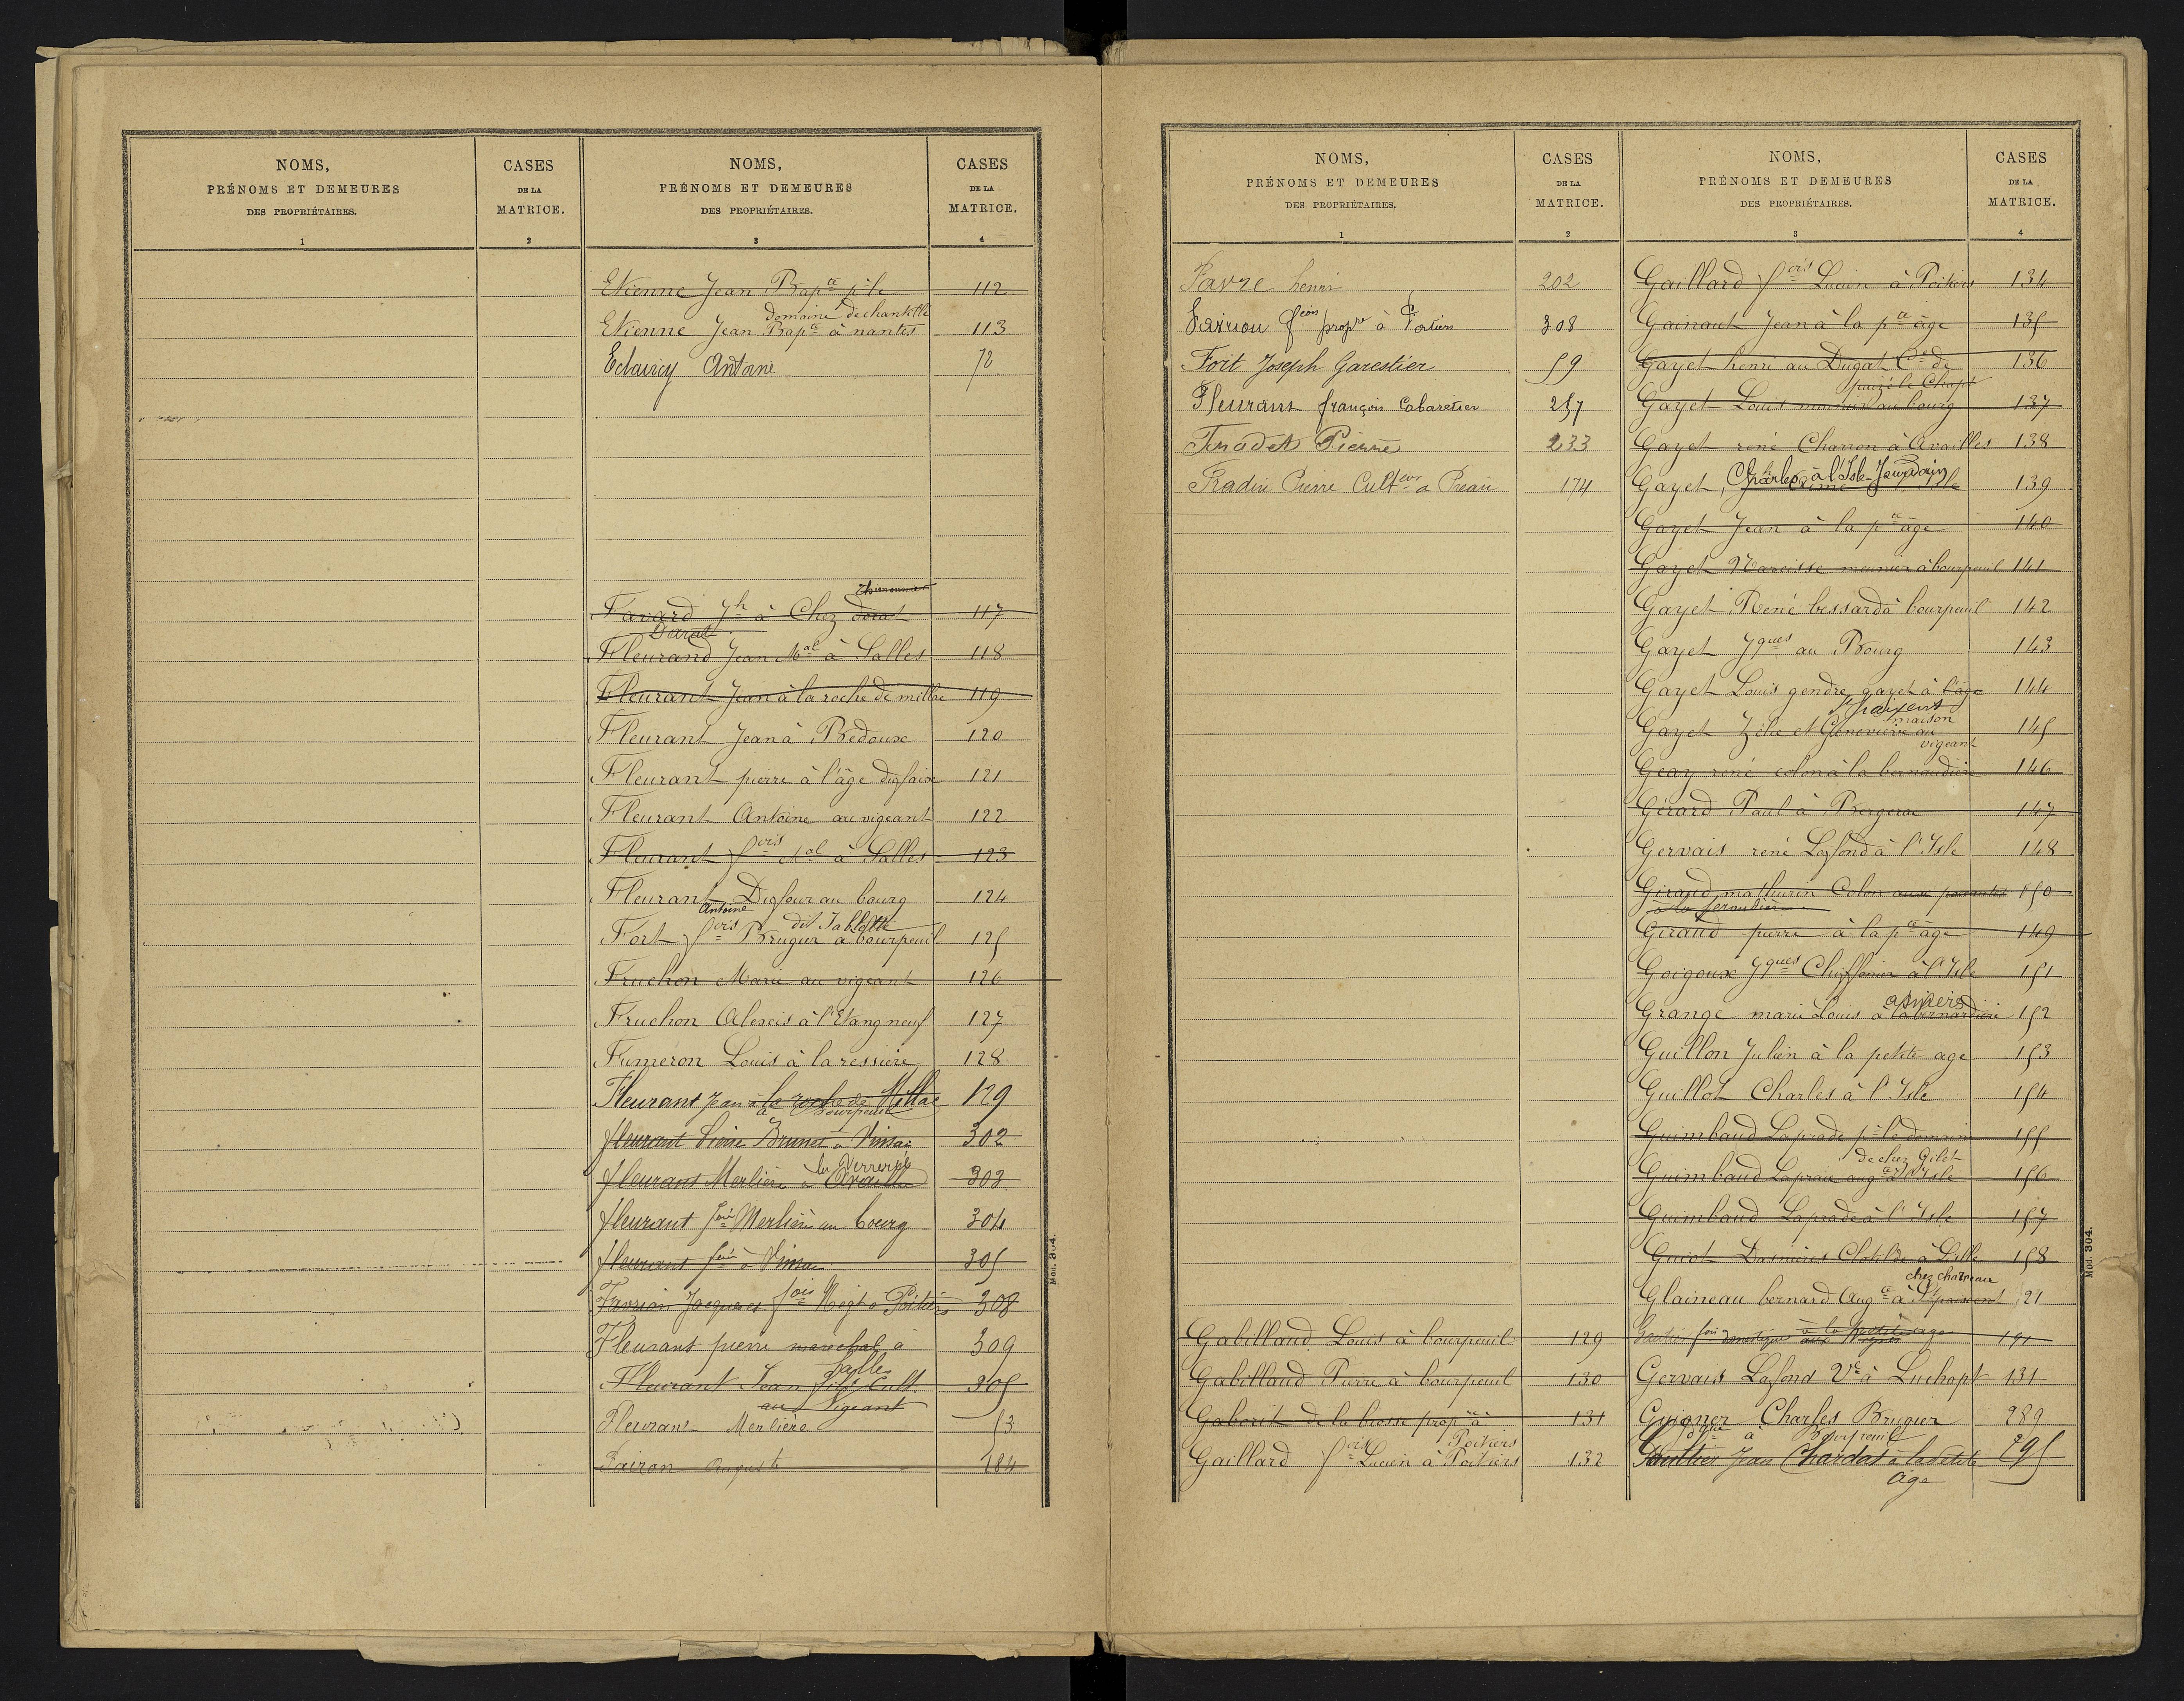 NOMS,
PRÉNOMS ET DEMEURES
DES PROPRIÉTAIRES.
1
CASES
DE LA
MATRICE.
2
NOMS,
PRÉNOMS ET DEMEURES
DES PROPRIÉTAIRES.
3
CASES
DE LA
MATRICE.
4
Etienne Jean Bapte pr le 112
domaine de chantelle
Etienne Jean Bapte à nantes 113
Eclaircy Antoine 72
Favard Jh à Chez dorat 117
Darat
Fleurand Jean Mal à Salles 118
Fleurant Jean à la roche de millac 119
Fleurant Jean à Bedoux 120
Fleurant pierre à l'âge 121
Fleurant Antoine au vigeant 122
Fleurant fois Mal à Salles 123
Fleurant au bourg 124
Antoine dit Tablette
Fort fois Brugier à bourpeuil 125
Fruchon Marie au vigeant 126
Fruchon Alexis à l'Etang neuf 127
Fumeron Louis à la ressière 128
Fleurant Jean à la roche de Millac 129
a Bourpeuil
fleurant Pierre Brunet à Vinsac 302
la Verrerie
fleurant Merlière à Availles 303
fleurant fois Merlière au bourg 304
fleurant fois à Vinsac 305
Favrion Jacques fois Négt à Poitiers 308
Fleurant pierre marechal à 309
Salles
Fleurant Jean fils Cult. 305
au Vigeant
Fleurant Merlière 53
Fairon Auguste 184
Mod. 304.
NOMS,
PRÉNOMS ET DEMEURES
DES PROPRIÉTAIRES.
1
CASES
DE LA
MATRICE.
2
NOMS,
PRÉNOMS ET DEMEURES
DES PROPRIÉTAIRES.
3
CASES
DE LA
MATRICE.
4
Favre henri 202
Favriou fcois propre à Poitiers 308
Fort Joseph Garestier 59
Fleurant françois Cabaretier 257
Fradet Pierre 233
Fradin Pierre Culteur a Preau 174
Gabilland Louis à bourpeuil 129
Gabilland Pierre à bourpeuil 130
Gaborit de la brosse propre à 131
Poitiers
Gaillard fois Lucien à Poitiers 132
Gaillard fois Lucien à Poitiers 134
Gainant Jean à la pte âge 135
Gayet henri au Dugat Cne de 136
paizé le Chapt
Gayet Louis au bourg 137
Gayet rené Charron à Availles 138
Gayet Charles à l'Isle-Jourdain 139
Gayet Jean à la pte âge 140
Gayet Narcisse meunier à bourpeuil 141
Gayet René bessard à bourpeuil 142
Gayet Jques au Bourg 143
Gayet Louis gendre gayet à l'âge 144
maison
Gayet Zélie et Geneviève au 145
vigeant
Geay rené colon à la bernaudière 146
Gérard Paul à Bergerac 147
Gervais rené Lafond à l'Isle 148
Giraud mathurin Colon 150
à la
Giraud pierre à la pte âge 149
Goigoux Jques Chiffonier à l'Isle 151
asnieres
Grange marie Louis à la bernardière 152
Guillon Julien à la petite age 153
Guillot Charles à l'Isle 154
Guimbaud Laprade pr le domaine 155
de chez Gilet
Guimbaud Laprade augte à l'Isle 156
Guimbaud Laprade à l'Isle 157
Guiot Clotilde à Lille 158
chez chatreau
Glaineau bernard Augte à 21
à la petite age
fois domestique aux 191
Gervais Lafond Ve à Luchapt 131
Guigner Charles Brugier 289
à Bourpeuil
Gaultier Jean Chardat à la petite 295
Age
Mod. 304.